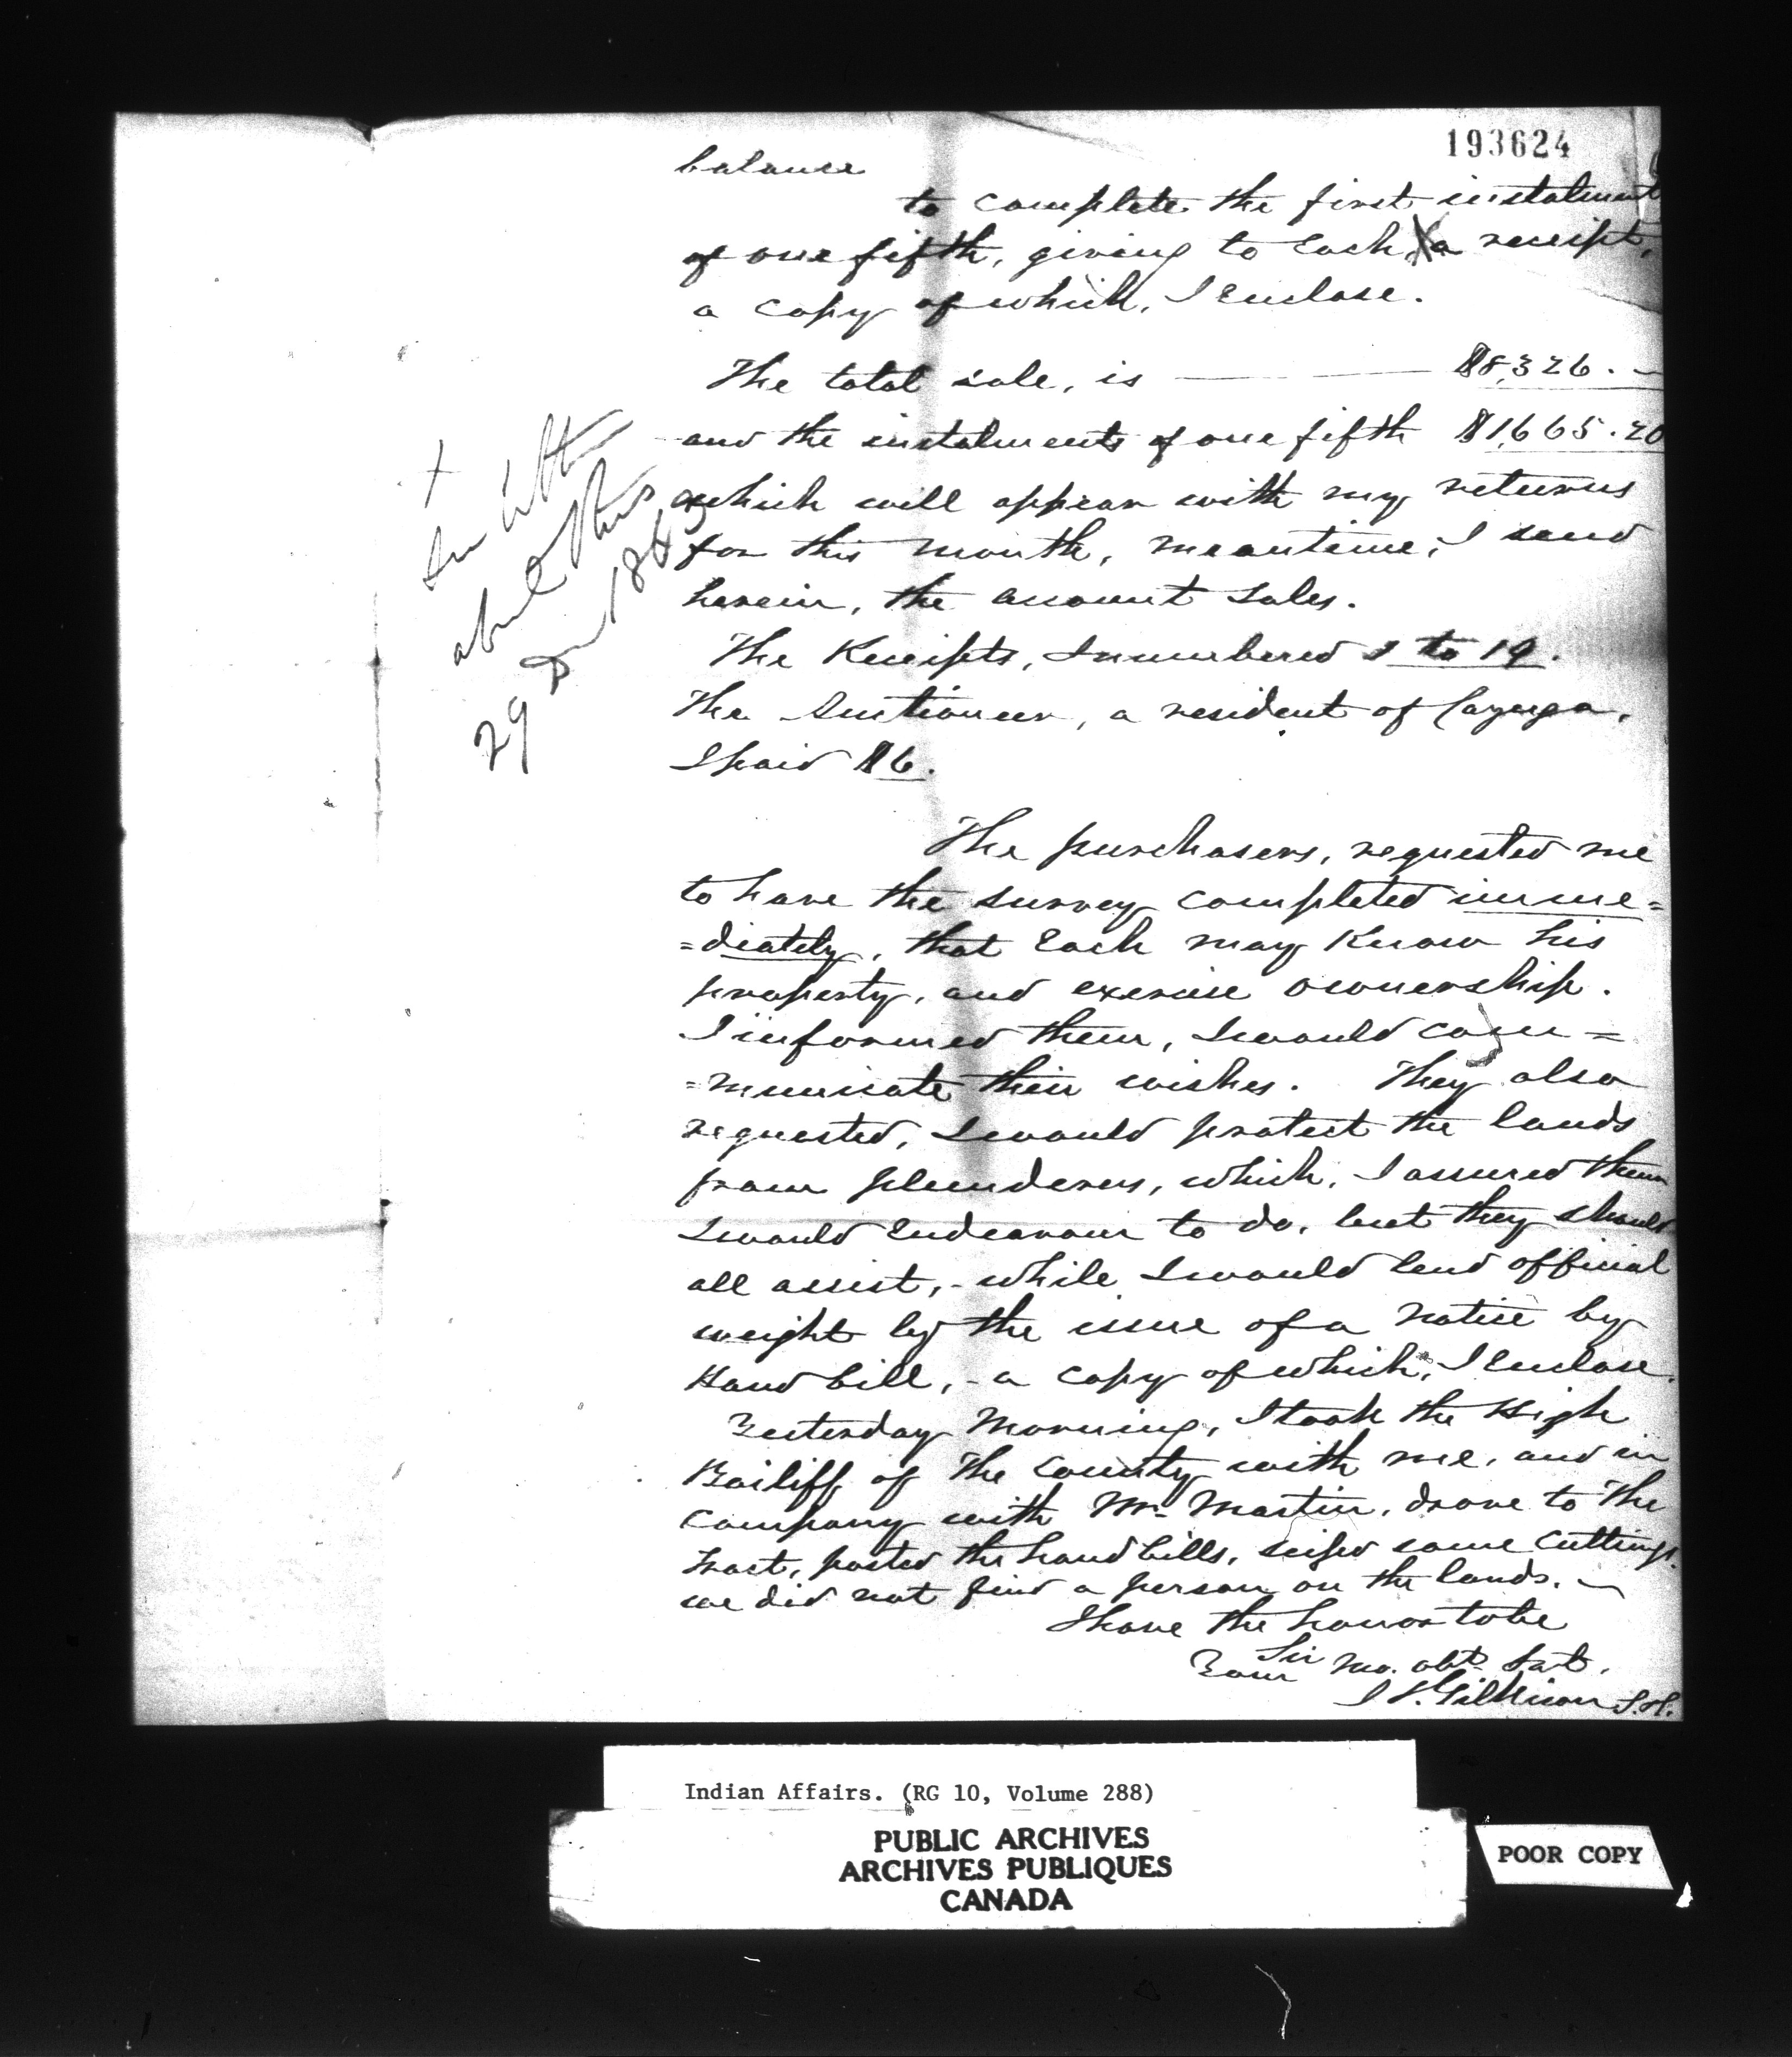 193624
balance
to complete the first instalment
of one fifth, giving to each, a receipt,
a copy of which, I enclose.
The total sale, is $8,326.
and the instalments of one fifth $1,665.20
which will appear with my returns
for this month, meantime, I send
herein, the account Sales.
The Receipts, I numbered 1 to 19.
The Auctioneer, a resident of Cayuga,
I paid $6.
X
letter
about this
29
The purchasers, requested me
to have the survey completed imme=
=diately, that Each may Know his
property, and exercise ownership.
I informed them, I would com=
=municate their wishes. They also
requested, I would protect the lands
from plunderers, which, I assured them
I would Endeavour to do, but they should
all assist, - while I would lend official
weight by the issue of a notice by
Hand bill, - a copy of which, I Enclose.
Yesterday Morning, I took the High
Bailiff of the County with me, and in
Company with Mr. Martin, drove to the
Tract, posted the hand bills, seized some Cuttings.
we did not find a person on the lands.
I have the honor to be
Sir
Your Mo. obt. Svt.
J. T. Gilkison
Indian Affairs. (RG 10, Volume 288)
PUBLIC ARCHIVES
ARCHIVES PUBLIQUES
CANADA
POOR COPY